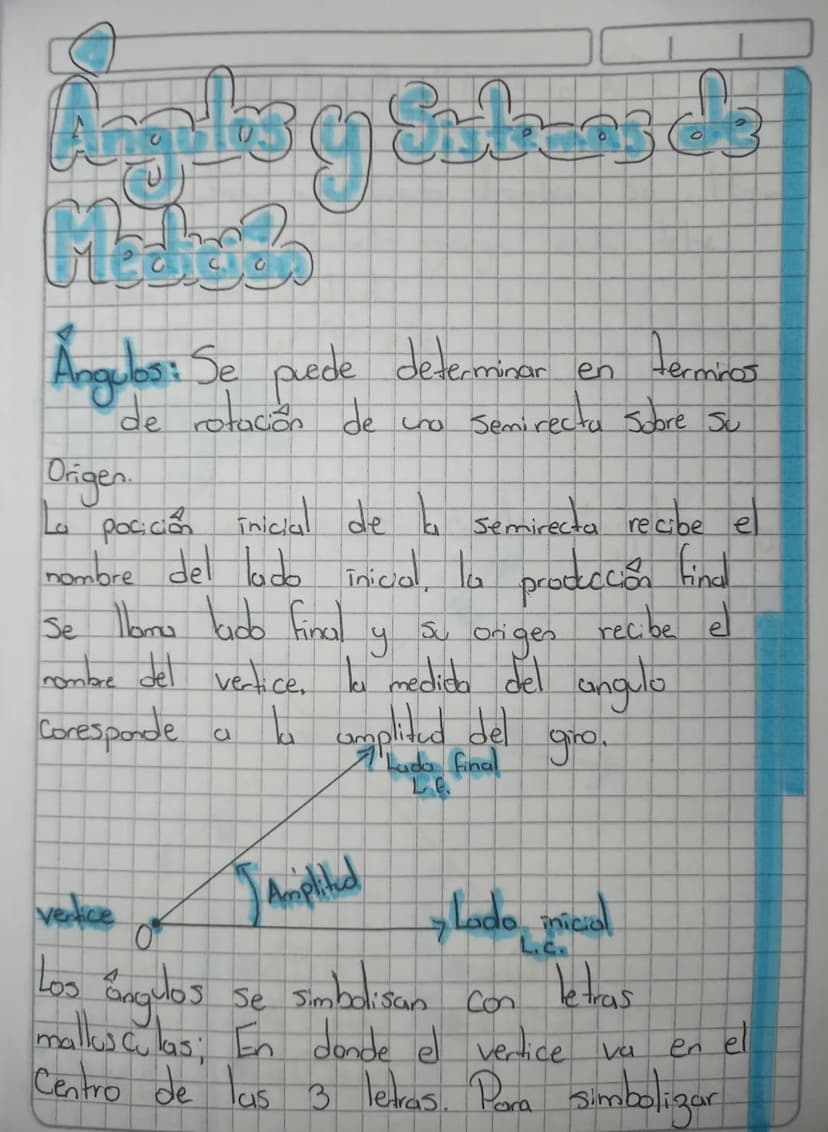 Ángulos y Sistemas de
Medición
Ángulos: Se puede determinar en terminos
de rotación de una semirecta sobre su
Origen.
La pocición inicial de la semirecta recibe el
nombre del lado inicial, la producción final
se llama lado final y su origen recibe el
nombre del vertice, la medida del angulo
Coresponde a la amplitud del giro.
Lado final
L.F.
Amplitud
vertice
O
Lado inicial
L.C.
Los ángulos se simbolisan con letras
mallusculas; En donde el vertice va en el
Centro de las 3 letras. Para simbolizar